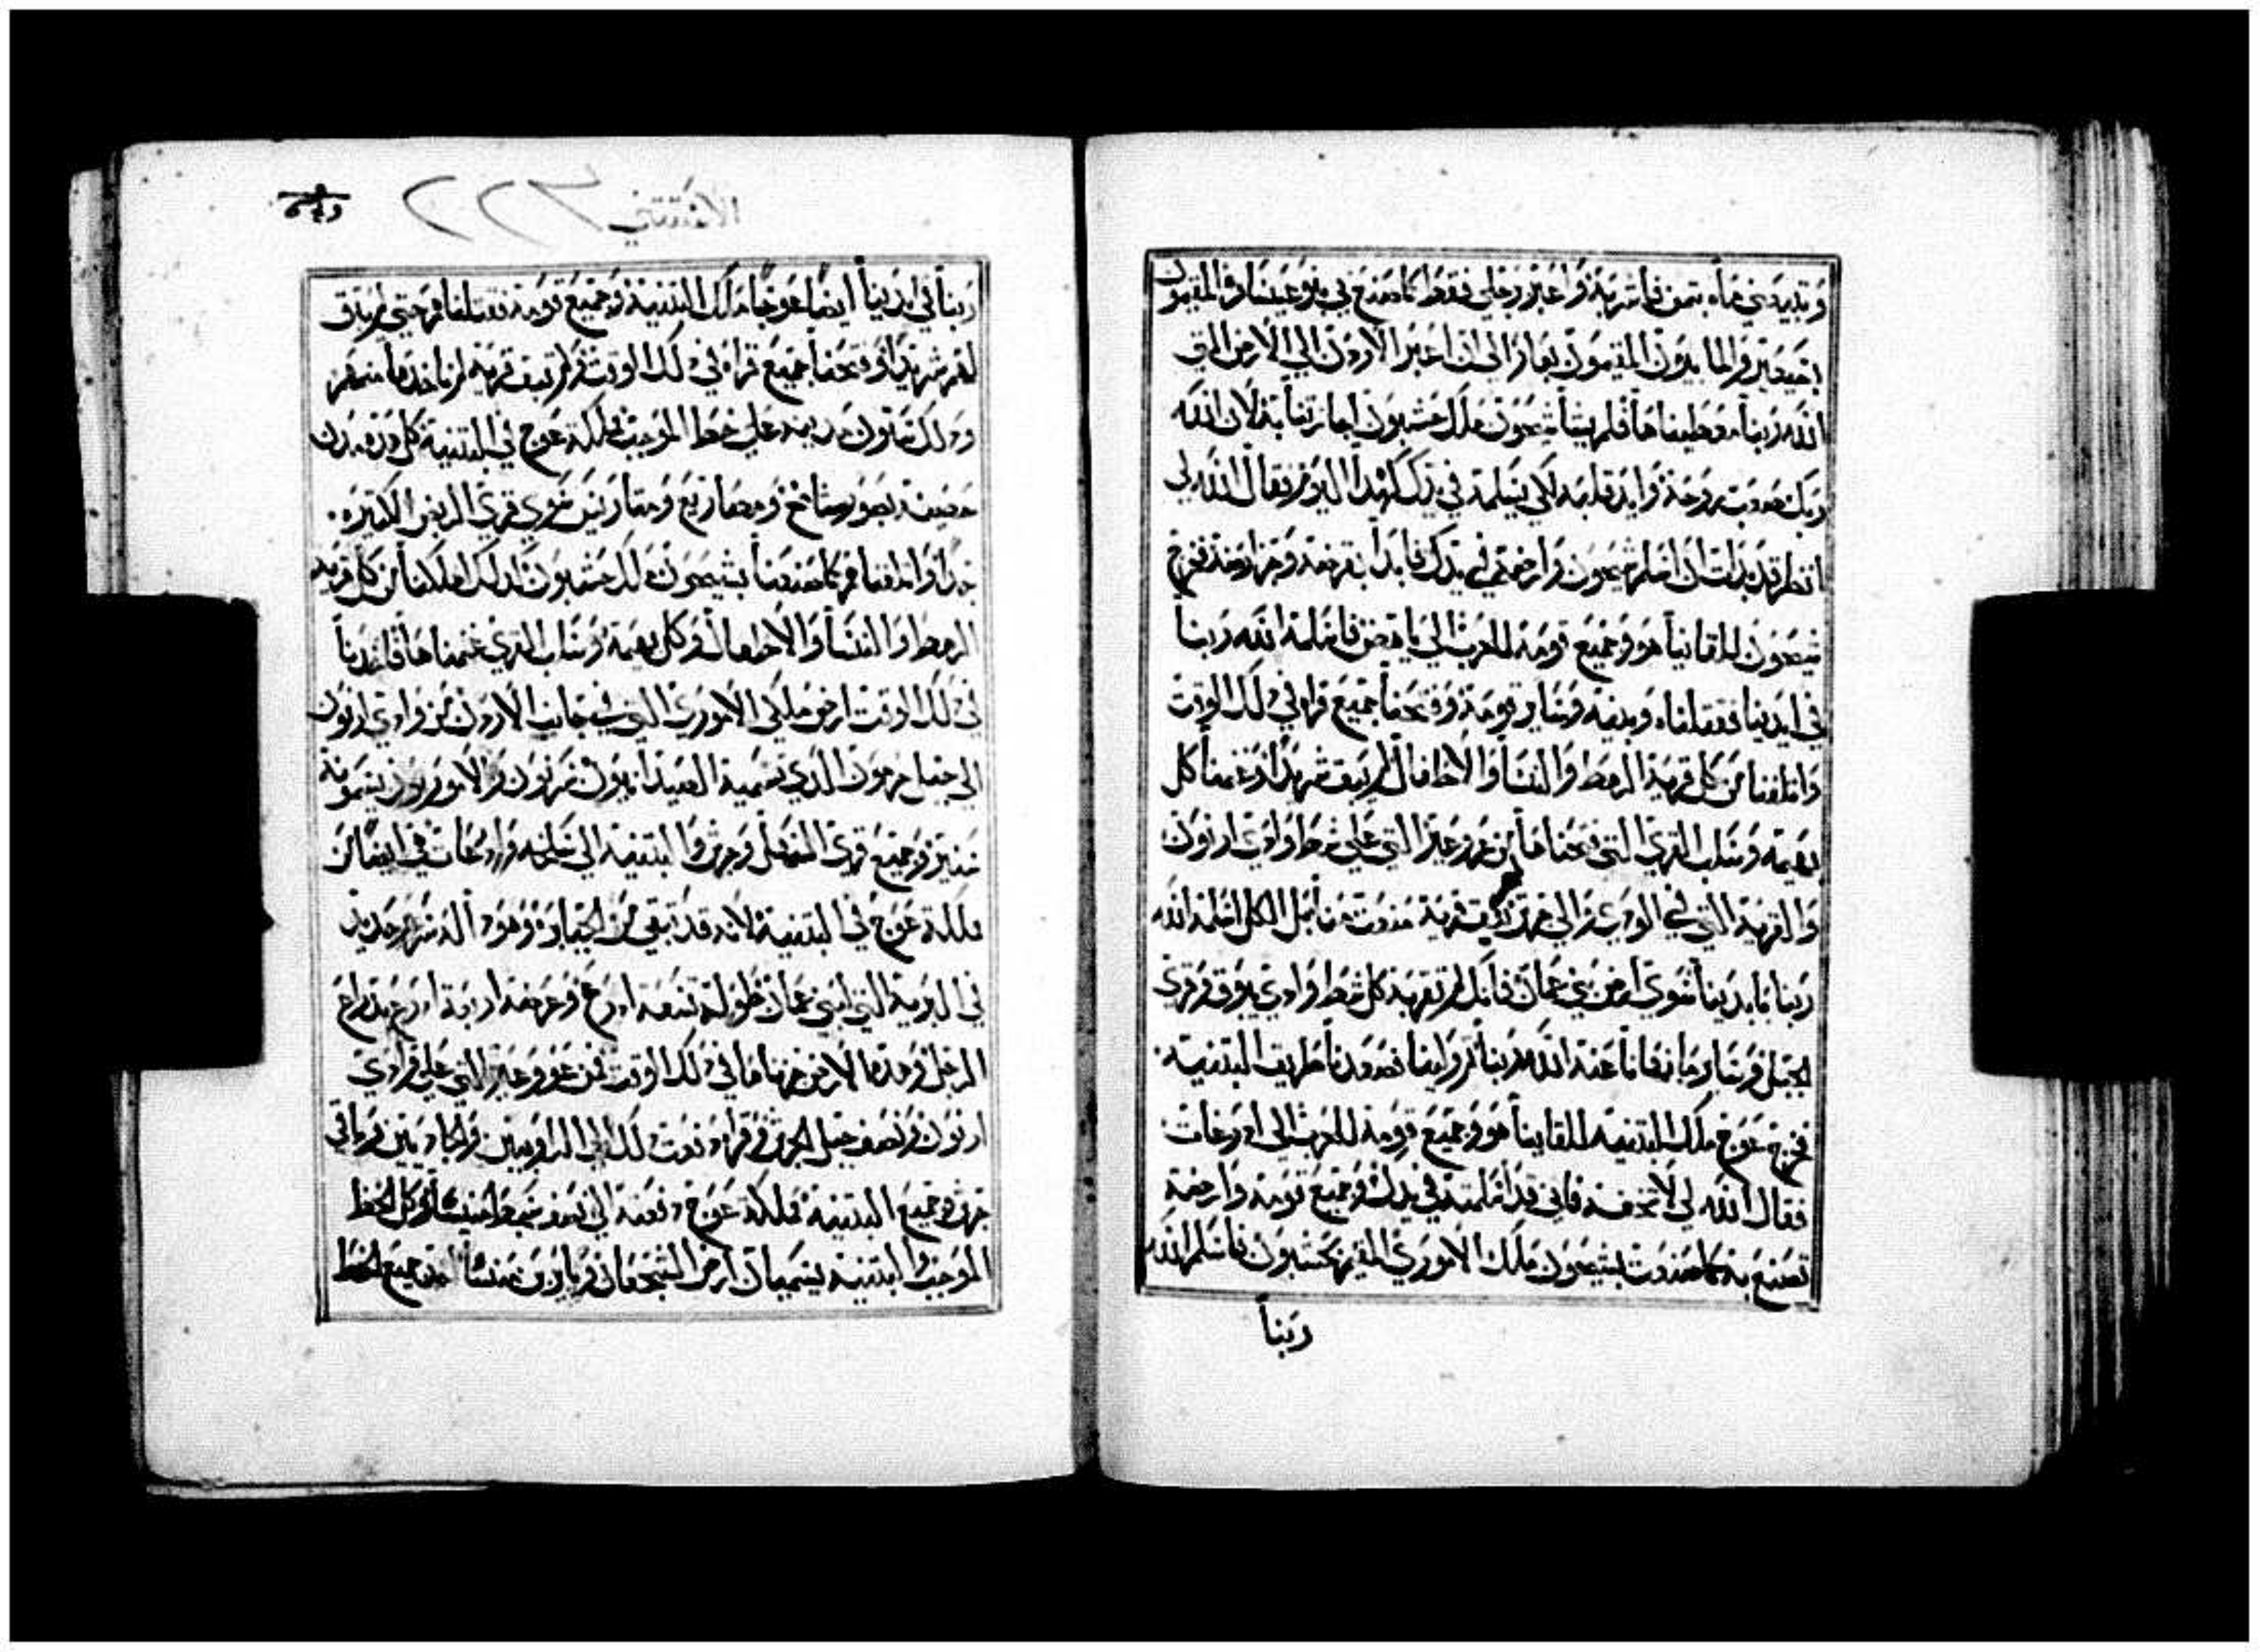 وتبيعني ماء بثمن فاشربه واعبر برجلي فقط كما صنع بي بنو عيسا والمقيمون
بجبعير والمابيون المقيمون بعار الى ان اعبر الاردن الى الارض التي
الله ربنا معطيناها فلم يشأ شيحون ملك حشبون اجازتنا به لان الله
ربك صعوبت روحه وايد قلبه لكي يسلمه في يدك كهذا اليوم فقال الله لي
انظر قد بدات ان اسلم شيحون وارضه في يدك فابدا بقرضه وحز ارضه فخرج
شيحون للقانيا هو وجميع قومه للحرب الى ياهص فاسلمه الله ربنا
في ايدينا فقتلناه وبنيه وساير قومه وفتحنا جميع قراه في ذلك الوقت
واتلفنا من كل قرية الرهط والنسا والاطفال لم يبق شريدا وغنمنا كل
بهيمه وسلب القرى التي فتحناها من عروعير التي على شط وادي ارنون
والقرية التي في الوادي والى جرش قرية منعت منا بل الكل اسلمه الله
ربنا بايدينا سوى ارض بني عمان فانك لم تقربه كل شط وادي يبوق وقرى
الجبل وساير ما نهانا عنه الله ربنا ثم ولينا وصعدنا طريق البتنيه
فخرج عوج ملك البتنيه للقاينا هو وجميع قومه للحرب الى ادرعات
فقال الله لي لا تخفه فاني قد اسلمته في يدك وجميع قومه وارضه
تصنع به كما صنعت بشيحون ملك الاموري المقيم بحشبون فاسلم الله
ربنا
الاستثني ٢٢٣
ربنا في ايدينا ايضا عوجا ملك البتنية وجميع قومه فقتلناهم حتى لم يبق
لهم شريدا وفتحنا جميع قراه في ذلك الوقت ولم تبق قرية لم ناخذها منهم
وذلك ستون مدينه على خط الموجب مملكة عوج في البتنية كل هذه مدن
حصينه بصور شامخ ومصاريع ومتاريس سوى قرى الربض الكثيره
جدا واتلفناهم كما صنعنا بشيحون ملك حشبون كذلك اهلكنا من كل قريه
الرهط والنسا والاطفال وكل بهيمة وسلب القرى غنمناها فاخذنا
في ذلك الوقت ارض ملكي الاموري التي في جانب الاردن من وادي ارنون
الى جبل حرمون الذي تسميه الصيدانيون سريون والاموريون يسمونه
سنير وجميع قرى السهل وجرش والبتنيه الى سلخه وادرعات في ايضا من
مملكة عوج في البتنية لانه قد تبقي من الجبابرة وهوذا سريره حديد
في البرية التي لبني عمان طوله تسعه اذرع وعرضه اربعة اذرع بذراع
الرجل وهذه الارض حزناها في ذلك الوقت من عروعير التي على وادي
ارنون ونصف جبل الجرش وقراه دفعت ذلك الى الراوبيين والجاديين وباقي
جرش وجميع البتنيه مملكة عوج دفعته الى نصف سبط منشا كل الخط
الموجب والبتنيه يسميان ارض الشجعان وياير بن منشا اخذ جميع الخط